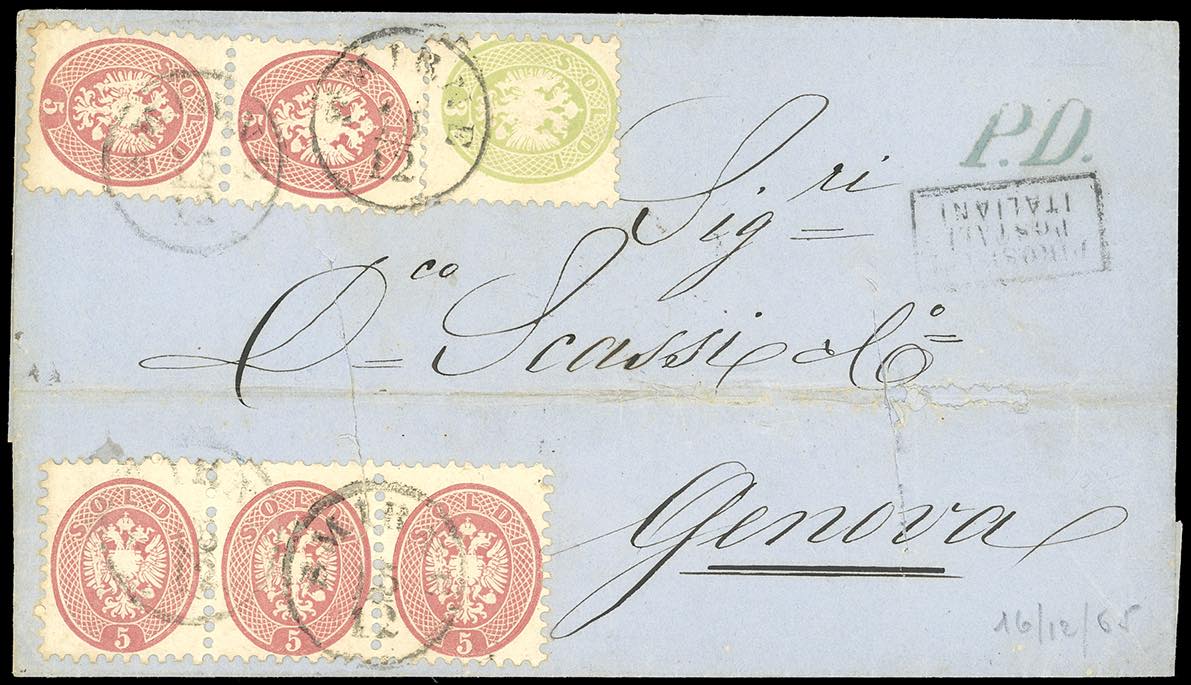 P.D.
PIROSCAFI
POSTALI
ITALIANI
SOLDI 5
SOLDI 5
SOLDI
12
12
Sig.ri
D.co Scassi & Co.
Genova
SOLDI 5
SOLDI 5
SOLDI 5
12
16/12/65